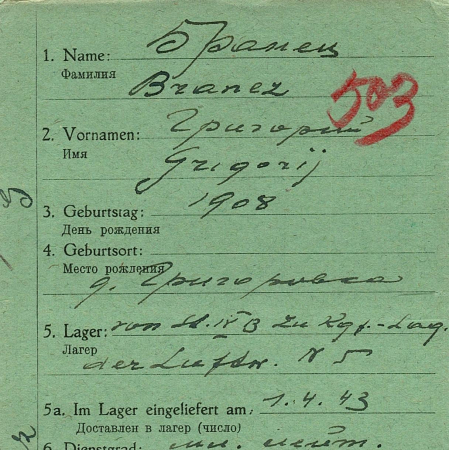 Бранец
1. Name:
Фамилия
Branez
503
2. Vornamen: Григорий
Имя
Grigorij
3. Geburtstag: 1908
День рождения
4. Geburtsort:
Место рождения
д. Григоровка
5. Lager: von St. IV B zu Kgf.-Lag.
Лагер
der Luftw. N 5
5a. Im Lager eingeliefert am: 1.4.43
Доставлен в лагер (число)
6. Dienstgrad: мл. лейт.